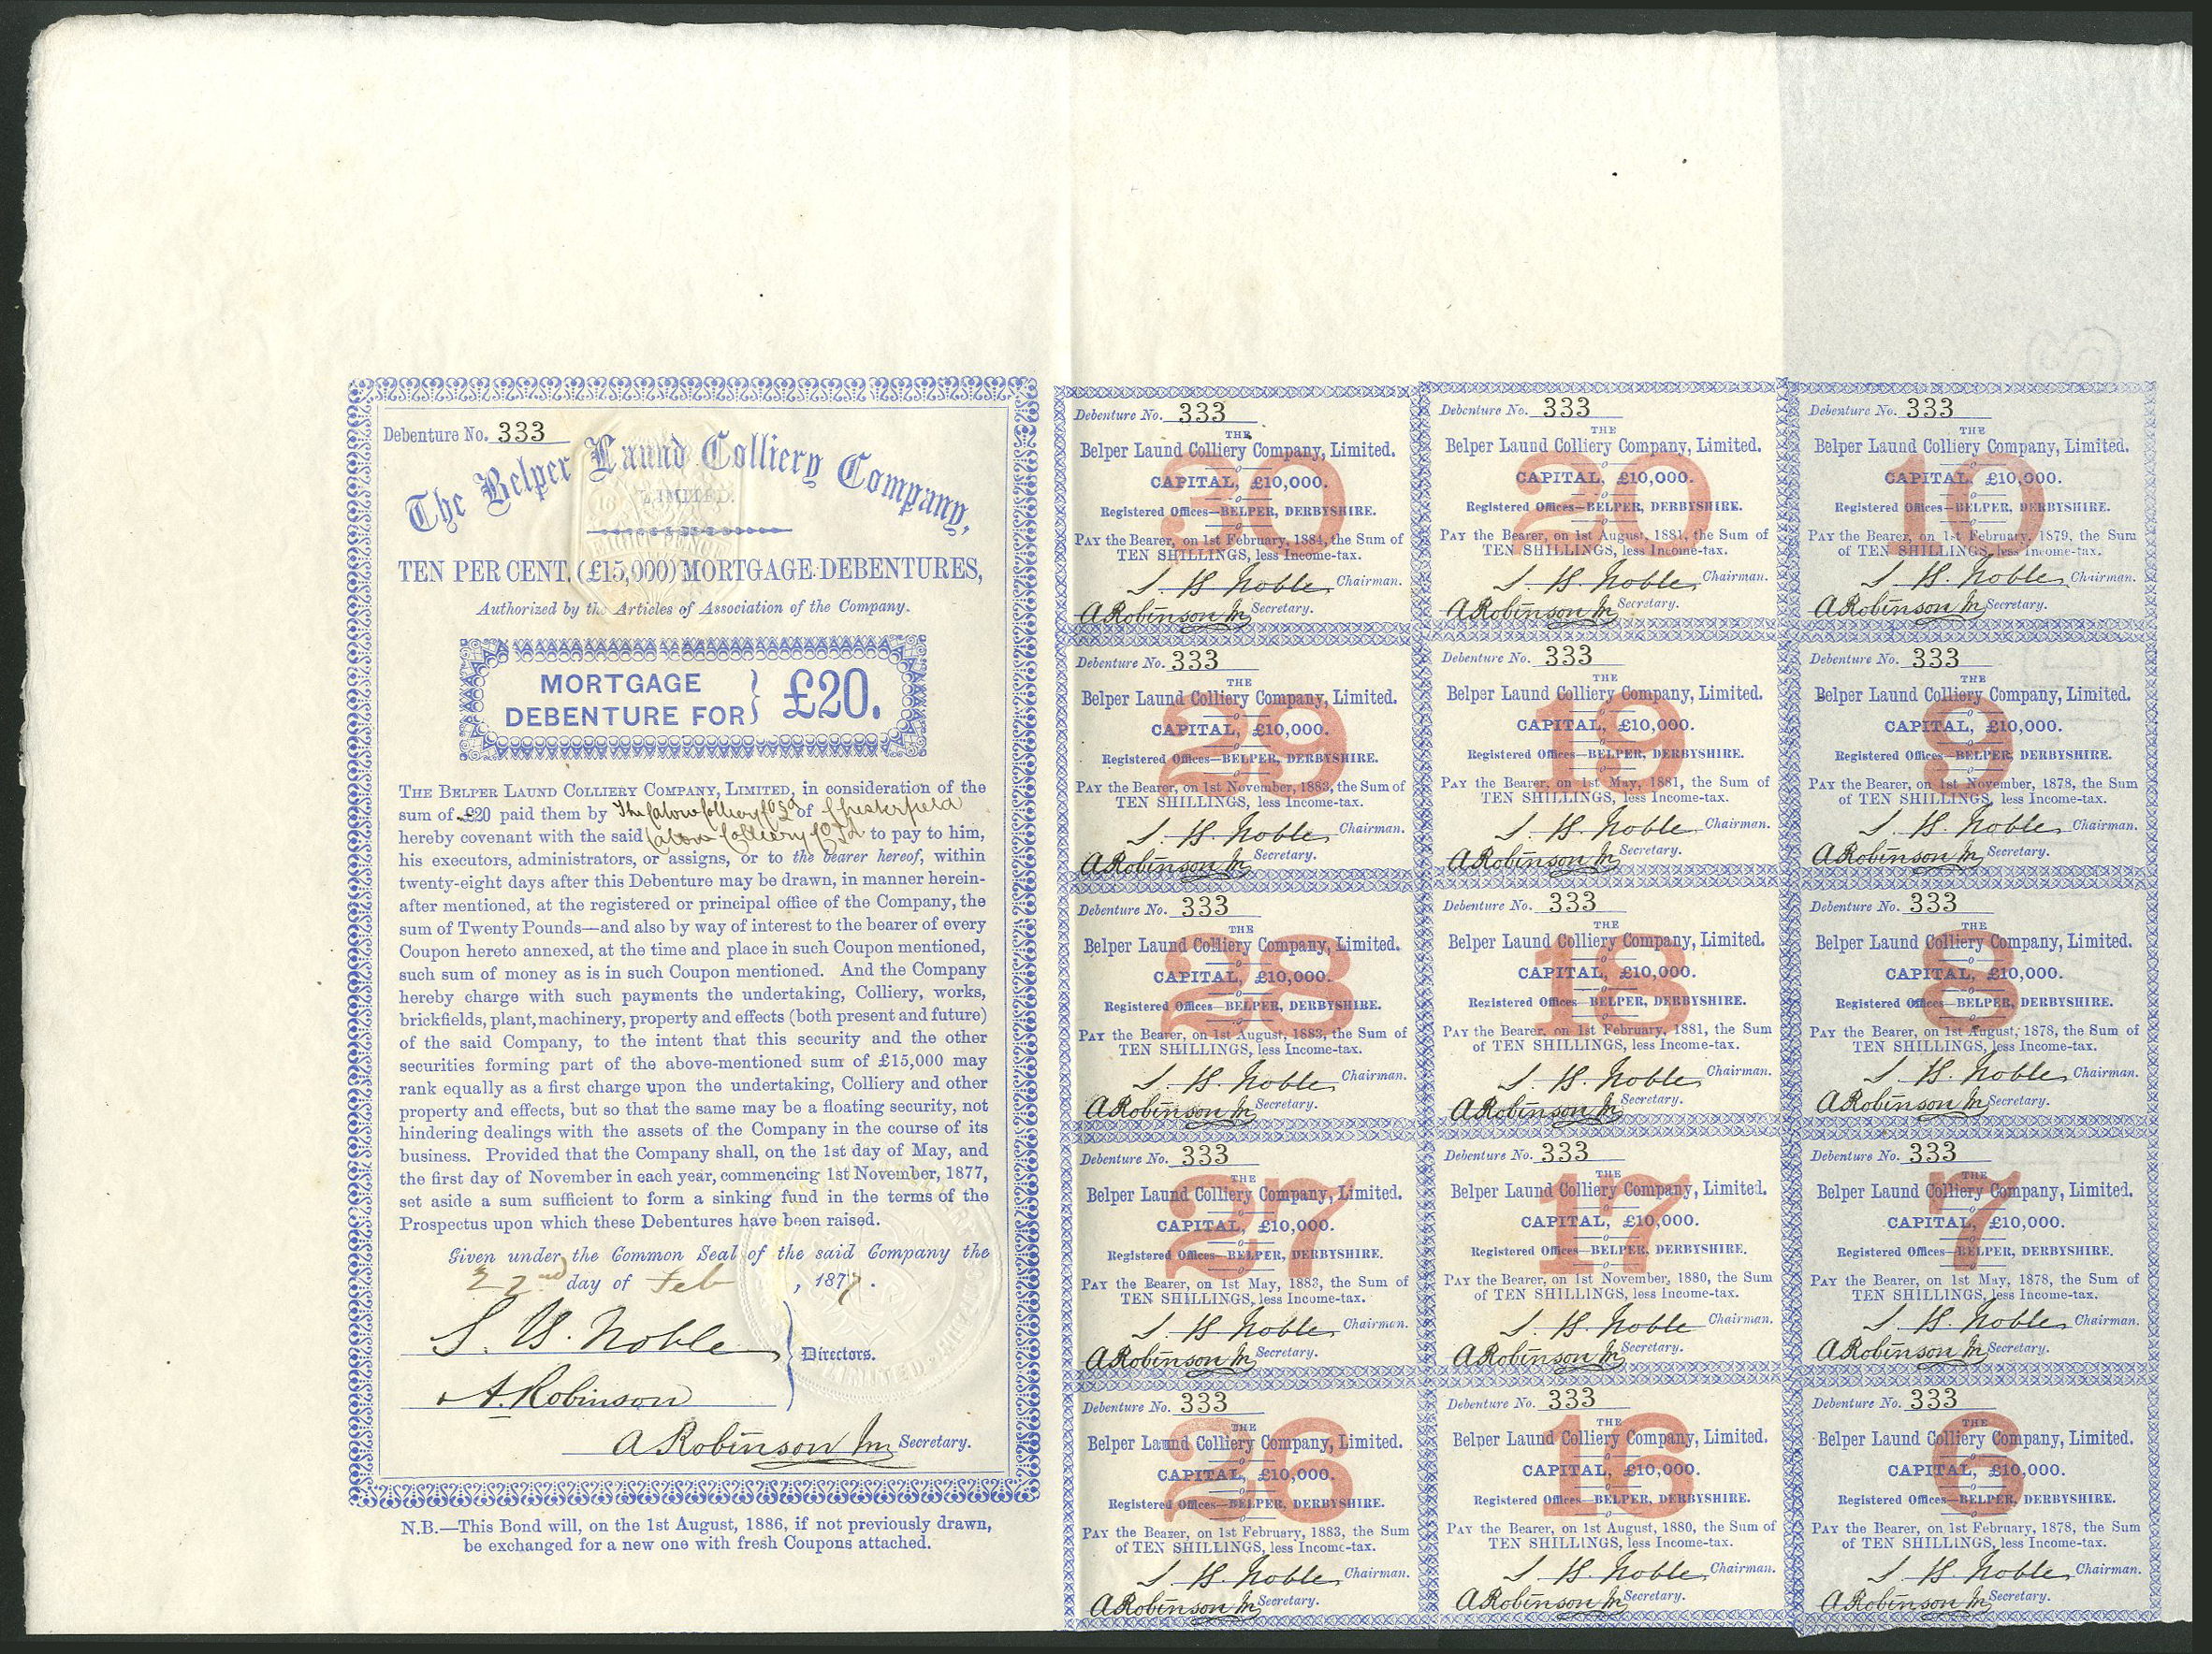 Debenture No. 333
The Belper Laund Colliery Company,
LIMITED.
TEN PER CENT. (£15,000) MORTGAGE DEBENTURES,
Authorized by the Articles of Association of the Company.
MORTGAGE
DEBENTURE FOR } £20.
THE BELPER LAUND COLLIERY COMPANY, LIMITED, in consideration of the
sum of £20 paid them by The Calow Colliery Co Ld of Chesterfield
hereby covenant with the said Calow Colliery Co Ld to pay to him,
his executors, administrators, or assigns, or to the bearer hereof, within
twenty-eight days after this Debenture may be drawn, in manner herein-
after mentioned, at the registered or principal office of the Company, the
sum of Twenty Pounds—and also by way of interest to the bearer of every
Coupon hereto annexed, at the time and place in such Coupon mentioned,
such sum of money as is in such Coupon mentioned. And the Company
hereby charge with such payments the undertaking, Colliery, works,
brickfields, plant, machinery, property and effects (both present and future)
of the said Company, to the intent that this security and the other
securities forming part of the above-mentioned sum of £15,000 may
rank equally as a first charge upon the undertaking, Colliery and other
property and effects, but so that the same may be a floating security, not
hindering dealings with the assets of the Company in the course of its
business. Provided that the Company shall, on the 1st day of May, and
the first day of November in each year, commencing 1st November, 1877,
set aside a sum sufficient to form a sinking fund in the terms of the
Prospectus upon which these Debentures have been raised.
Given under the Common Seal of the said Company the
22nd day of Feb, 1877.
S. H. Noble
Directors.
A. Robinson
A Robinson Jn Secretary.
N.B.—This Bond will, on the 1st August, 1886, if not previously drawn,
be exchanged for a new one with fresh Coupons attached.
Debenture No. 333
30
THE
Belper Laund Colliery Company, Limited.
CAPITAL, £10,000.
Registered Offices—BELPER, DERBYSHIRE.
PAY the Bearer, on 1st February, 1884, the Sum of
TEN SHILLINGS, less Income-tax.
S. H. Noble Chairman.
A Robinson Jn Secretary.
Debenture No. 333
20
THE
Belper Laund Colliery Company, Limited.
CAPITAL, £10,000.
Registered Offices—BELPER, DERBYSHIRE.
PAY the Bearer, on 1st August, 1881, the Sum of
TEN SHILLINGS, less Income-tax.
S. H. Noble Chairman.
A Robinson Jn Secretary.
Debenture No. 333
10
THE
Belper Laund Colliery Company, Limited.
CAPITAL, £10,000.
Registered Offices—BELPER, DERBYSHIRE.
PAY the Bearer, on 1st February, 1879, the Sum
of TEN SHILLINGS, less Income-tax.
S. H. Noble Chairman.
A Robinson Jn Secretary.
Debenture No. 333
29
THE
Belper Laund Colliery Company, Limited.
CAPITAL, £10,000.
Registered Offices—BELPER, DERBYSHIRE.
PAY the Bearer, on 1st November, 1883, the Sum of
TEN SHILLINGS, less Income-tax.
S. H. Noble Chairman.
A Robinson Jn Secretary.
Debenture No. 333
19
THE
Belper Laund Colliery Company, Limited.
CAPITAL, £10,000.
Registered Offices—BELPER, DERBYSHIRE.
PAY the Bearer, on 1st May, 1881, the Sum of
TEN SHILLINGS, less Income-tax.
S. H. Noble Chairman.
A Robinson Jn Secretary.
Debenture No. 333
9
THE
Belper Laund Colliery Company, Limited.
CAPITAL, £10,000.
Registered Offices—BELPER, DERBYSHIRE.
PAY the Bearer, on 1st November, 1878, the Sum
of TEN SHILLINGS, less Income-tax.
S. H. Noble Chairman.
A Robinson Jn Secretary.
Debenture No. 333
28
THE
Belper Laund Colliery Company, Limited.
CAPITAL, £10,000.
Registered Offices—BELPER, DERBYSHIRE.
PAY the Bearer, on 1st August, 1883, the Sum of
TEN SHILLINGS, less Income-tax.
S. H. Noble Chairman.
A Robinson Jn Secretary.
Debenture No. 333
18
THE
Belper Laund Colliery Company, Limited.
CAPITAL, £10,000.
Registered Offices—BELPER, DERBYSHIRE.
PAY the Bearer, on 1st February, 1881, the Sum
of TEN SHILLINGS, less Income-tax.
S. H. Noble Chairman.
A Robinson Jn Secretary.
Debenture No. 333
8
THE
Belper Laund Colliery Company, Limited.
CAPITAL, £10,000.
Registered Offices—BELPER, DERBYSHIRE.
PAY the Bearer, on 1st August, 1878, the Sum of
TEN SHILLINGS, less Income-tax.
S. H. Noble Chairman.
A Robinson Jn Secretary.
Debenture No. 333
27
THE
Belper Laund Colliery Company, Limited.
CAPITAL, £10,000.
Registered Offices—BELPER, DERBYSHIRE.
PAY the Bearer, on 1st May, 1883, the Sum of
TEN SHILLINGS, less Income-tax.
S. H. Noble Chairman.
A Robinson Jn Secretary.
Debenture No. 333
17
THE
Belper Laund Colliery Company, Limited.
CAPITAL, £10,000.
Registered Offices—BELPER, DERBYSHIRE.
PAY the Bearer, on 1st November, 1880, the Sum
of TEN SHILLINGS, less Income-tax.
S. H. Noble Chairman.
A Robinson Jn Secretary.
Debenture No. 333
7
THE
Belper Laund Colliery Company, Limited.
CAPITAL, £10,000.
Registered Offices—BELPER, DERBYSHIRE.
PAY the Bearer, on 1st May, 1878, the Sum of
TEN SHILLINGS, less Income-tax.
S. H. Noble Chairman.
A Robinson Jn Secretary.
Debenture No. 333
26
THE
Belper Laund Colliery Company, Limited.
CAPITAL, £10,000.
Registered Offices—BELPER, DERBYSHIRE.
PAY the Bearer, on 1st February, 1883, the Sum
of TEN SHILLINGS, less Income-tax.
S. H. Noble Chairman.
A Robinson Jn Secretary.
Debenture No. 333
16
THE
Belper Laund Colliery Company, Limited.
CAPITAL, £10,000.
Registered Offices—BELPER, DERBYSHIRE.
PAY the Bearer, on 1st August, 1880, the Sum of
TEN SHILLINGS, less Income-tax.
S. H. Noble Chairman.
A Robinson Jn Secretary.
Debenture No. 333
6
THE
Belper Laund Colliery Company, Limited.
CAPITAL, £10,000.
Registered Offices—BELPER, DERBYSHIRE.
PAY the Bearer, on 1st February, 1878, the Sum
of TEN SHILLINGS, less Income-tax.
S. H. Noble Chairman.
A Robinson Jn Secretary.